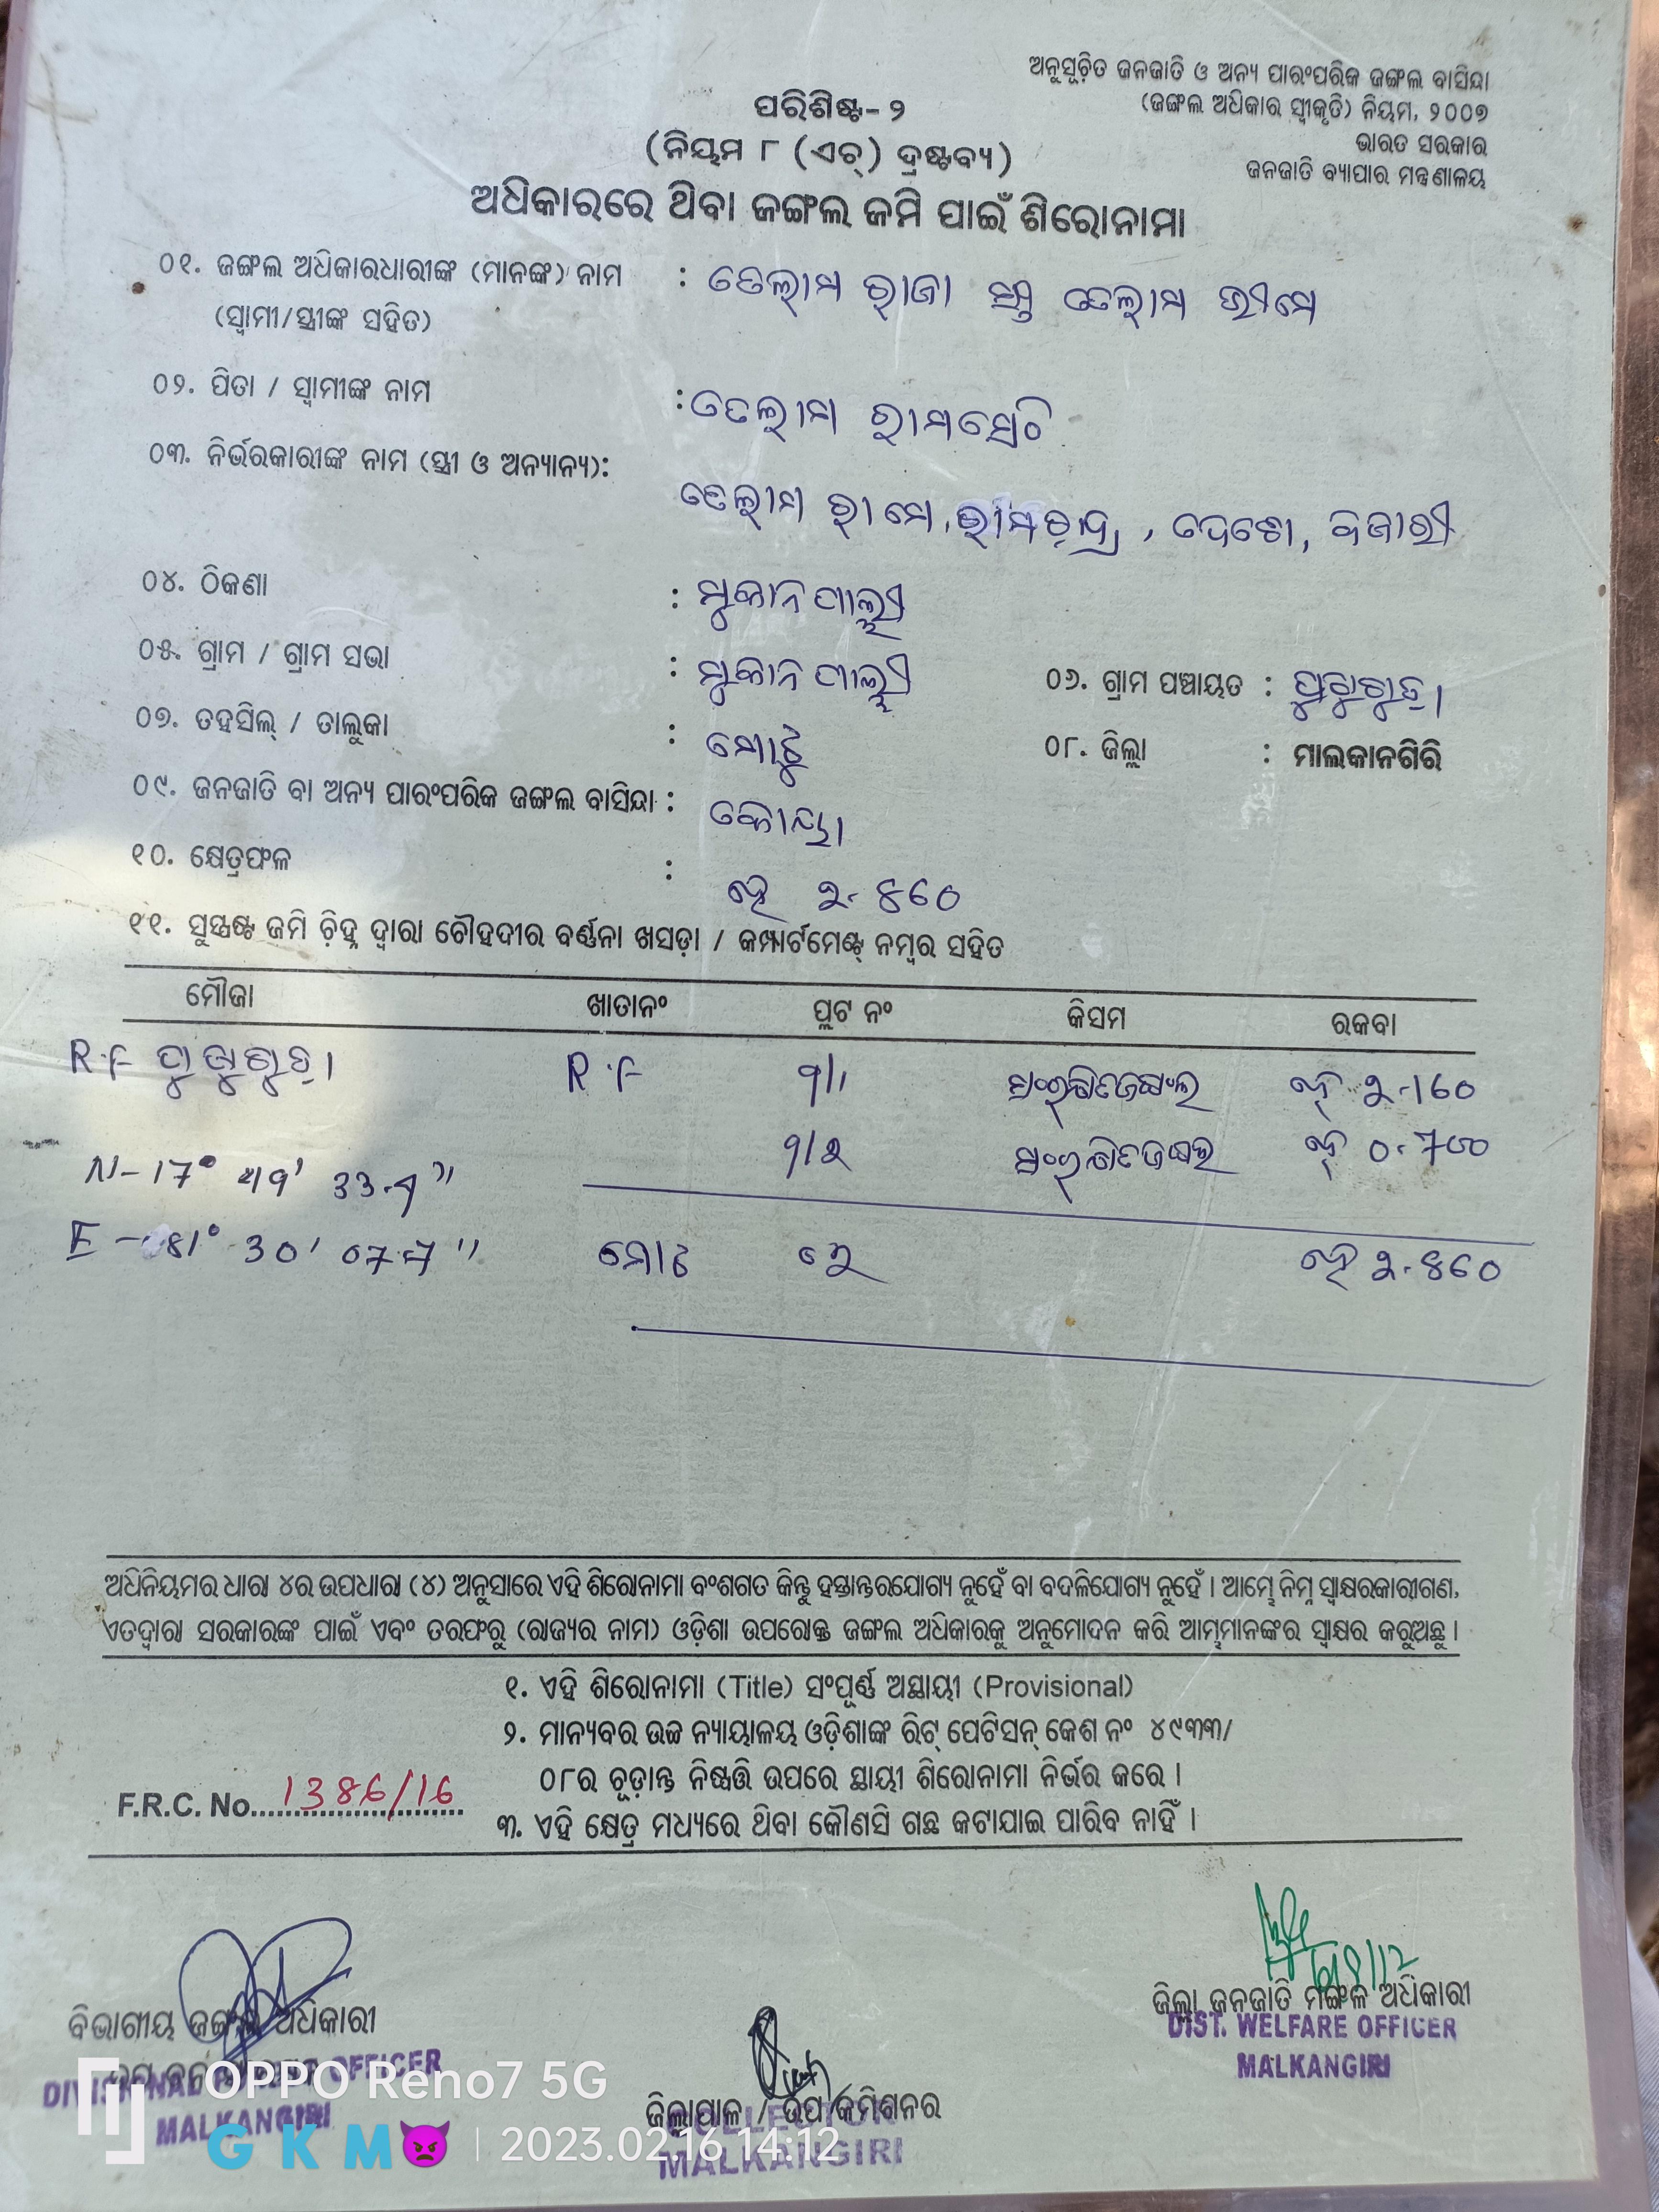 ଅନୁସୂଚିତ ଜନଜାତି ଓ ଅନ୍ୟ ପାରଂପରିକ ଜଙ୍ଗଲ ବାସିନ୍ଦା
(ଜଙ୍ଗଲ ଅଧିକାର ସ୍ୱୀକୃତି) ନିୟମ, ୨୦୦୭
ଭାରତ ସରକାର
ଜନଜାତି ବ୍ୟାପାର ମନ୍ତ୍ରଣାଳୟ
ପରିଶିଷ୍ଟ-୨
(ନିୟମ ୮ (ଏଚ୍) ଦ୍ରଷ୍ଟବ୍ୟ)
ଅଧିକାରରେ ଥିବା ଜଙ୍ଗଲ ଜମି ପାଇଁ ଶିରୋନାମା
୦୧. ଜଙ୍ଗଲ ଅଧିକାରଧାରୀଙ୍କ (ମାନଙ୍କ) ନାମ : ତେଲାମ ରାଜା ତେଲାମ ଭୀମେ
(ସ୍ୱାମୀ/ସ୍ତ୍ରୀଙ୍କ ସହିତ)
୦୨. ପିତା / ସ୍ୱାମୀଙ୍କ ନାମ : ତେଲାମ
୦୩. ନିର୍ଭରକାରୀଙ୍କ ନାମ (ସ୍ତ୍ରୀ ଓ ଅନ୍ୟାନ୍ୟ):
ତେଲାମ ରାମେ,
୦୪. ଠିକଣା : ମୁକାନପାଲ୍ଲୀ
୦୫. ଗ୍ରାମ / ଗ୍ରାମ ସଭା : ମୁକାନପାଲ୍ଲୀ ୦୬. ଗ୍ରାମ ପଞ୍ଚାୟତ :
୦୭. ତହସିଲ୍ / ତାଲୁକା : ମୋଟୁ ୦୮. ଜିଲ୍ଲା : ମାଲକାନଗିରି
୦୯. ଜନଜାତି ବା ଅନ୍ୟ ପାରଂପରିକ ଜଙ୍ଗଲ ବାସିନ୍ଦା : କୋୟା
୧୦. କ୍ଷେତ୍ରଫଳ : ହେ ୨.୫60
୧୧. ସୁସ୍ପଷ୍ଟ ଜମି ଚିହ୍ନ ଦ୍ୱାରା ଚୌହଦୀର ବର୍ଣ୍ଣନା ଖସଡ଼ା / କମ୍ପାର୍ଟମେଣ୍ଟ୍ ନମ୍ବର ସହିତ
ମୌଜା ଖାତାନଂ ପ୍ଲଟ ନଂ କିସମ ରକବା
R.F R.F ୩/୧ ହେ ୨.160
୩/୨ ହେ
N-17° 49' E-081° 30'
ମୋଟ ହେ ୨.୫60
ଅଧିନିୟମର ଧାରା ୪ର ଉପଧାରା (୪) ଅନୁସାରେ ଏହି ଶିରୋନାମା ବଂଶଗତ କିନ୍ତୁ ହସ୍ତାନ୍ତରଯୋଗ୍ୟ ନୁହେଁ ବା ବଦଳିଯୋଗ୍ୟ ନୁହେଁ । ଆମ୍ଭେ ନିମ୍ନ ସ୍ୱାକ୍ଷରକାରୀଗଣ,
ଏତଦ୍ୱାରା ସରକାରଙ୍କ ପାଇଁ ଏବଂ ତରଫରୁ (ରାଜ୍ୟର ନାମ) ଓଡ଼ିଶା ଉପରୋକ୍ତ ଜଙ୍ଗଲ ଅଧିକାରକୁ ଅନୁମୋଦନ କରି ଆମ୍ଭମାନଙ୍କର ସ୍ୱାକ୍ଷର କରୁଅଛୁ ।
୧. ଏହି ଶିରୋନାମା (Title) ସଂପୂର୍ଣ୍ଣ ଅସ୍ଥାୟୀ (Provisional)
୨. ମାନ୍ୟବର ଉଚ୍ଚ ନ୍ୟାୟାଳୟ ଓଡ଼ିଶାଙ୍କ ରିଟ୍ ପେଟିସନ୍ କେଶ ନଂ ୪୯୩୩/
୦୮ର ଚୂଡ଼ାନ୍ତ ନିଷ୍ପତ୍ତି ଉପରେ ସ୍ଥାୟୀ ଶିରୋନାମା ନିର୍ଭର କରେ ।
F.R.C. No. 1386/16
୩. ଏହି କ୍ଷେତ୍ର ମଧ୍ୟରେ ଥିବା କୌଣସି ଗଛ କଟାଯାଇ ପାରିବ ନାହିଁ ।
ଜିଲ୍ଲା ଜନଜାତି ମଙ୍ଗଳ ଅଧିକାରୀ
DIST. WELFARE OFFICER
MALKANGIRI
ବିଭାଗୀୟ ଜଙ୍ଗଲ ଅଧିକାରୀ
DIVISIONAL FOREST OFFICER
MALKANGIRI
ଜିଲ୍ଲାପାଳ / ଉପ କମିଶନର
COLLECTOR
MALKANGIRI
OPPO Reno7 5G
G K M 👿 | 2023.02.16 14:12